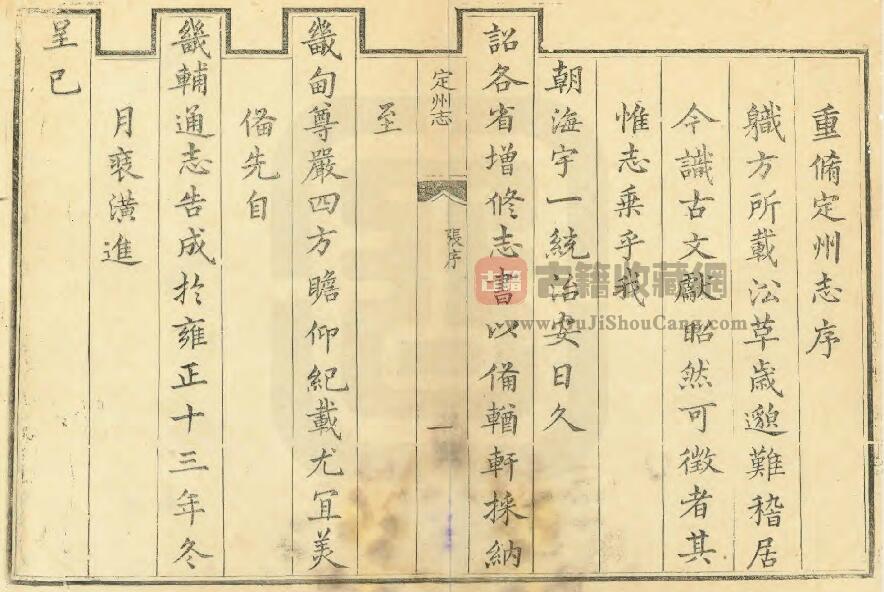 重脩定州志序
職方所載㳂革歲邈難稽居
今識古文獻昭然可徵者其
惟志乗乎我
朝海宇一統治安日久
詔各省增修志書以俻輶軒採納
定州志
張序
一
至
畿甸尊嚴四方瞻仰紀載尤宜美
俻先自
畿輔通志告成扵雍正十三年冬
月裒潢進
呈已
古籍收藏網
www.GuJiShouCang.com